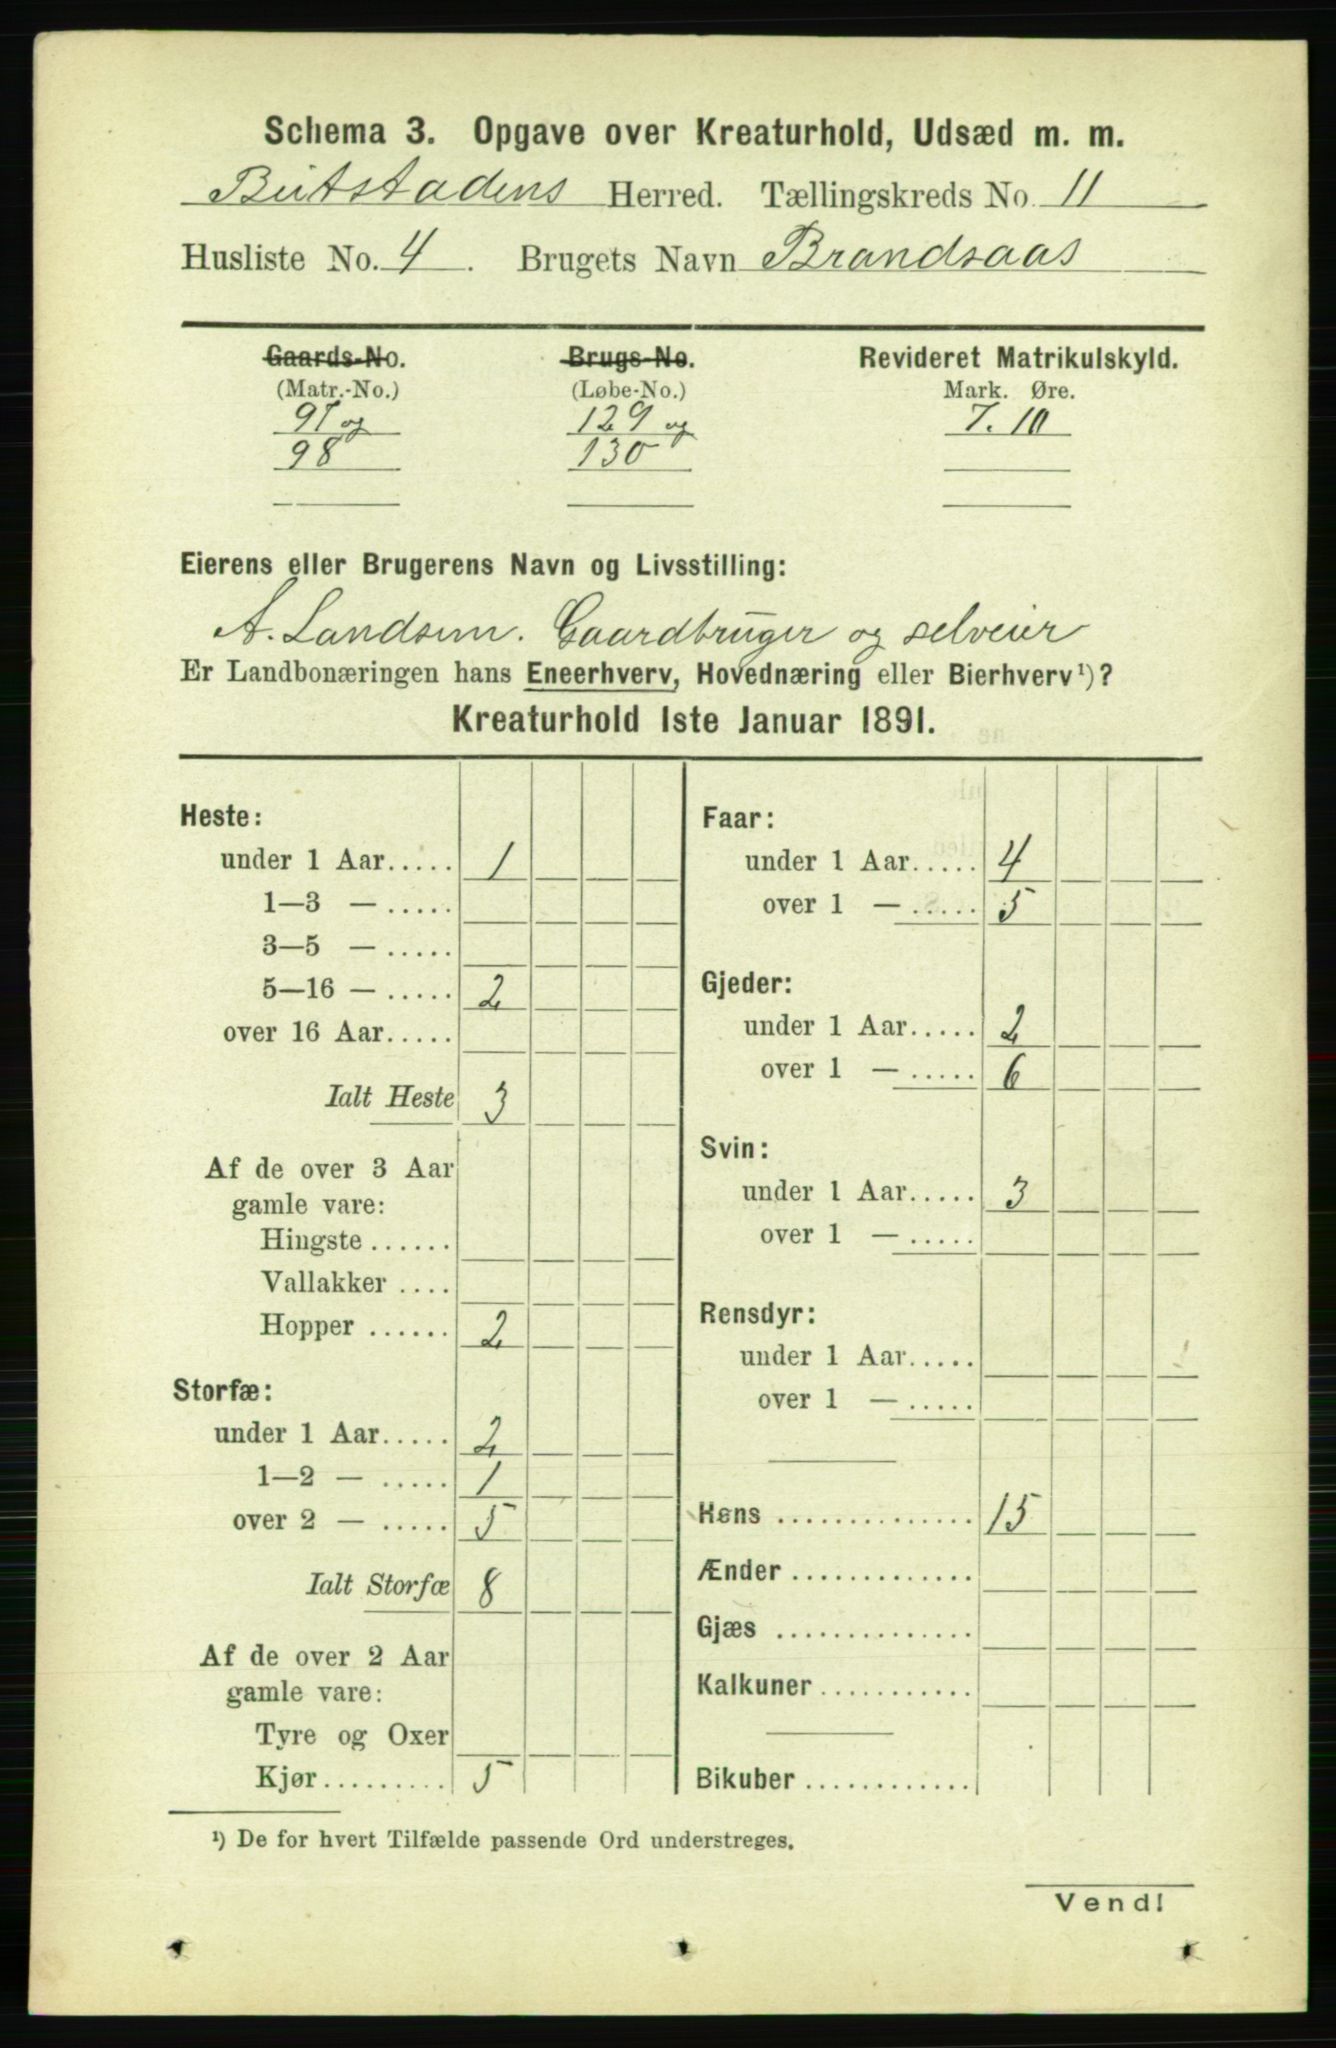 Schema 3. Opgave over Kreaturhold, Udsæd m. m.
Beitstadens Herred. Tællingskreds No. 11
Husliste No. 4. Brugets Navn Brandsaas
Gaards-No. Brugs-No. Revideret Matrikulskyld.
(Matr.-No.) (Løbe-No.) Mark. Øre.
97 og 129 og 7. 10
98 130
Eierens eller Brugerens Navn og Livsstilling:
A. Landsem. Gaardbruger og selveier
Er Landbonæringen hans Eneerhverv, Hovednæring eller Bierhverv¹)?
Kreaturhold 1ste Januar 1891.
Heste:
under 1 Aar..... 1
1—3 — .....
3—5 — .....
5—16 — ..... 2
over 16 Aar.....
Ialt Heste 3
Af de over 3 Aar
gamle vare:
Hingste ......
Vallakker ....
Hopper ...... 2
Storfæ:
under 1 Aar..... 2
1—2 — ..... 1
over 2 — ..... 5
Ialt Storfæ 8
Af de over 2 Aar
gamle vare:
Tyre og Oxer
Kjør.......... 5
Faar:
under 1 Aar..... 4
over 1 — ..... 5
Gjeder:
under 1 Aar..... 2
over 1 — ..... 6
Svin:
under 1 Aar..... 3
over 1 — .....
Rensdyr:
under 1 Aar.....
over 1 — .....
Høns .............. 15
Ænder .............
Gjæs ..............
Kalkuner...........
Bikuber ............
¹) De for hvert Tilfælde passende Ord understreges.
Vend!